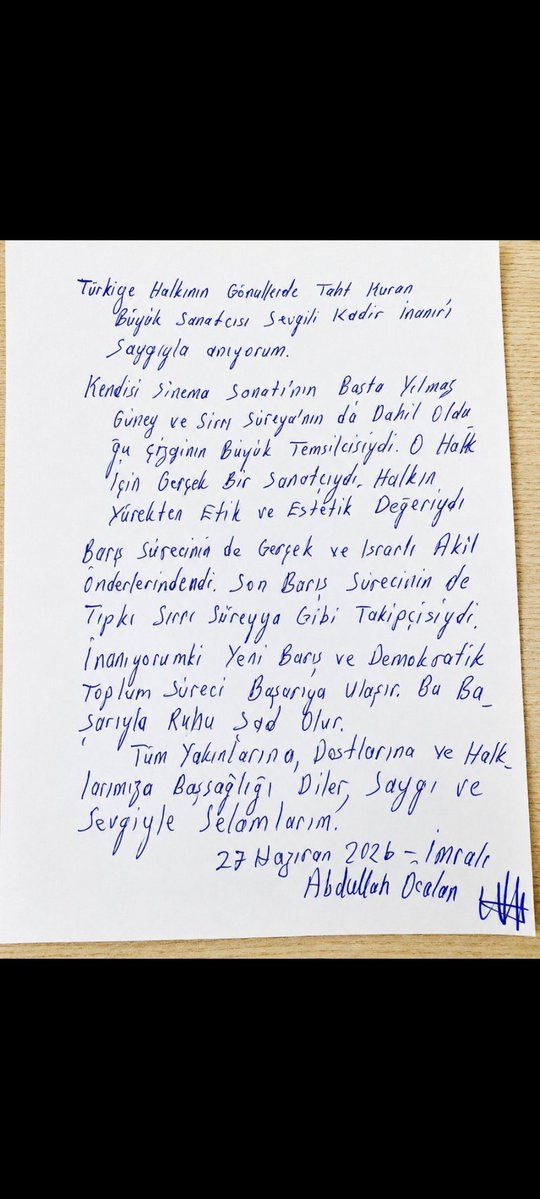 Türkiye Halkının Gönullerde Taht Kuran
Büyük Sanatcısı Sevgili Kadir İnanır'ı
Saygıyla anıyorum.
Kendisi Sinema Sanatı'nın Başta Yılmaz
Güney ve Sırrı Süreya'nın da Dahil Oldu
ğu çizginin Büyük Temsilcisiydi. O Halk
için Gerçek Bir Sanatçıydı. Halkın
Yürekten Etik ve Estetik Değeriydi
Barış Sürecinin de Gerçek ve Israrlı Akil
Önderlerindendi. Son Barış Sürecinin de
Tıpkı Sırrı Süreyya Gibi Takipçisiydi.
İnanıyorumki Yeni Barış ve Demokratik
Toplum Süreci Başarıya Ulaşır. Bu Ba-
şarıyla Ruhu Şad Olur.
Tüm Yakınlarına, Dostlarına ve Halk-
larımıza Başsağlığı Diler, Saygı ve
Sevgiyle Selamlarım.
27 Haziran 2026 - İmralı
Abdullah Öcalan